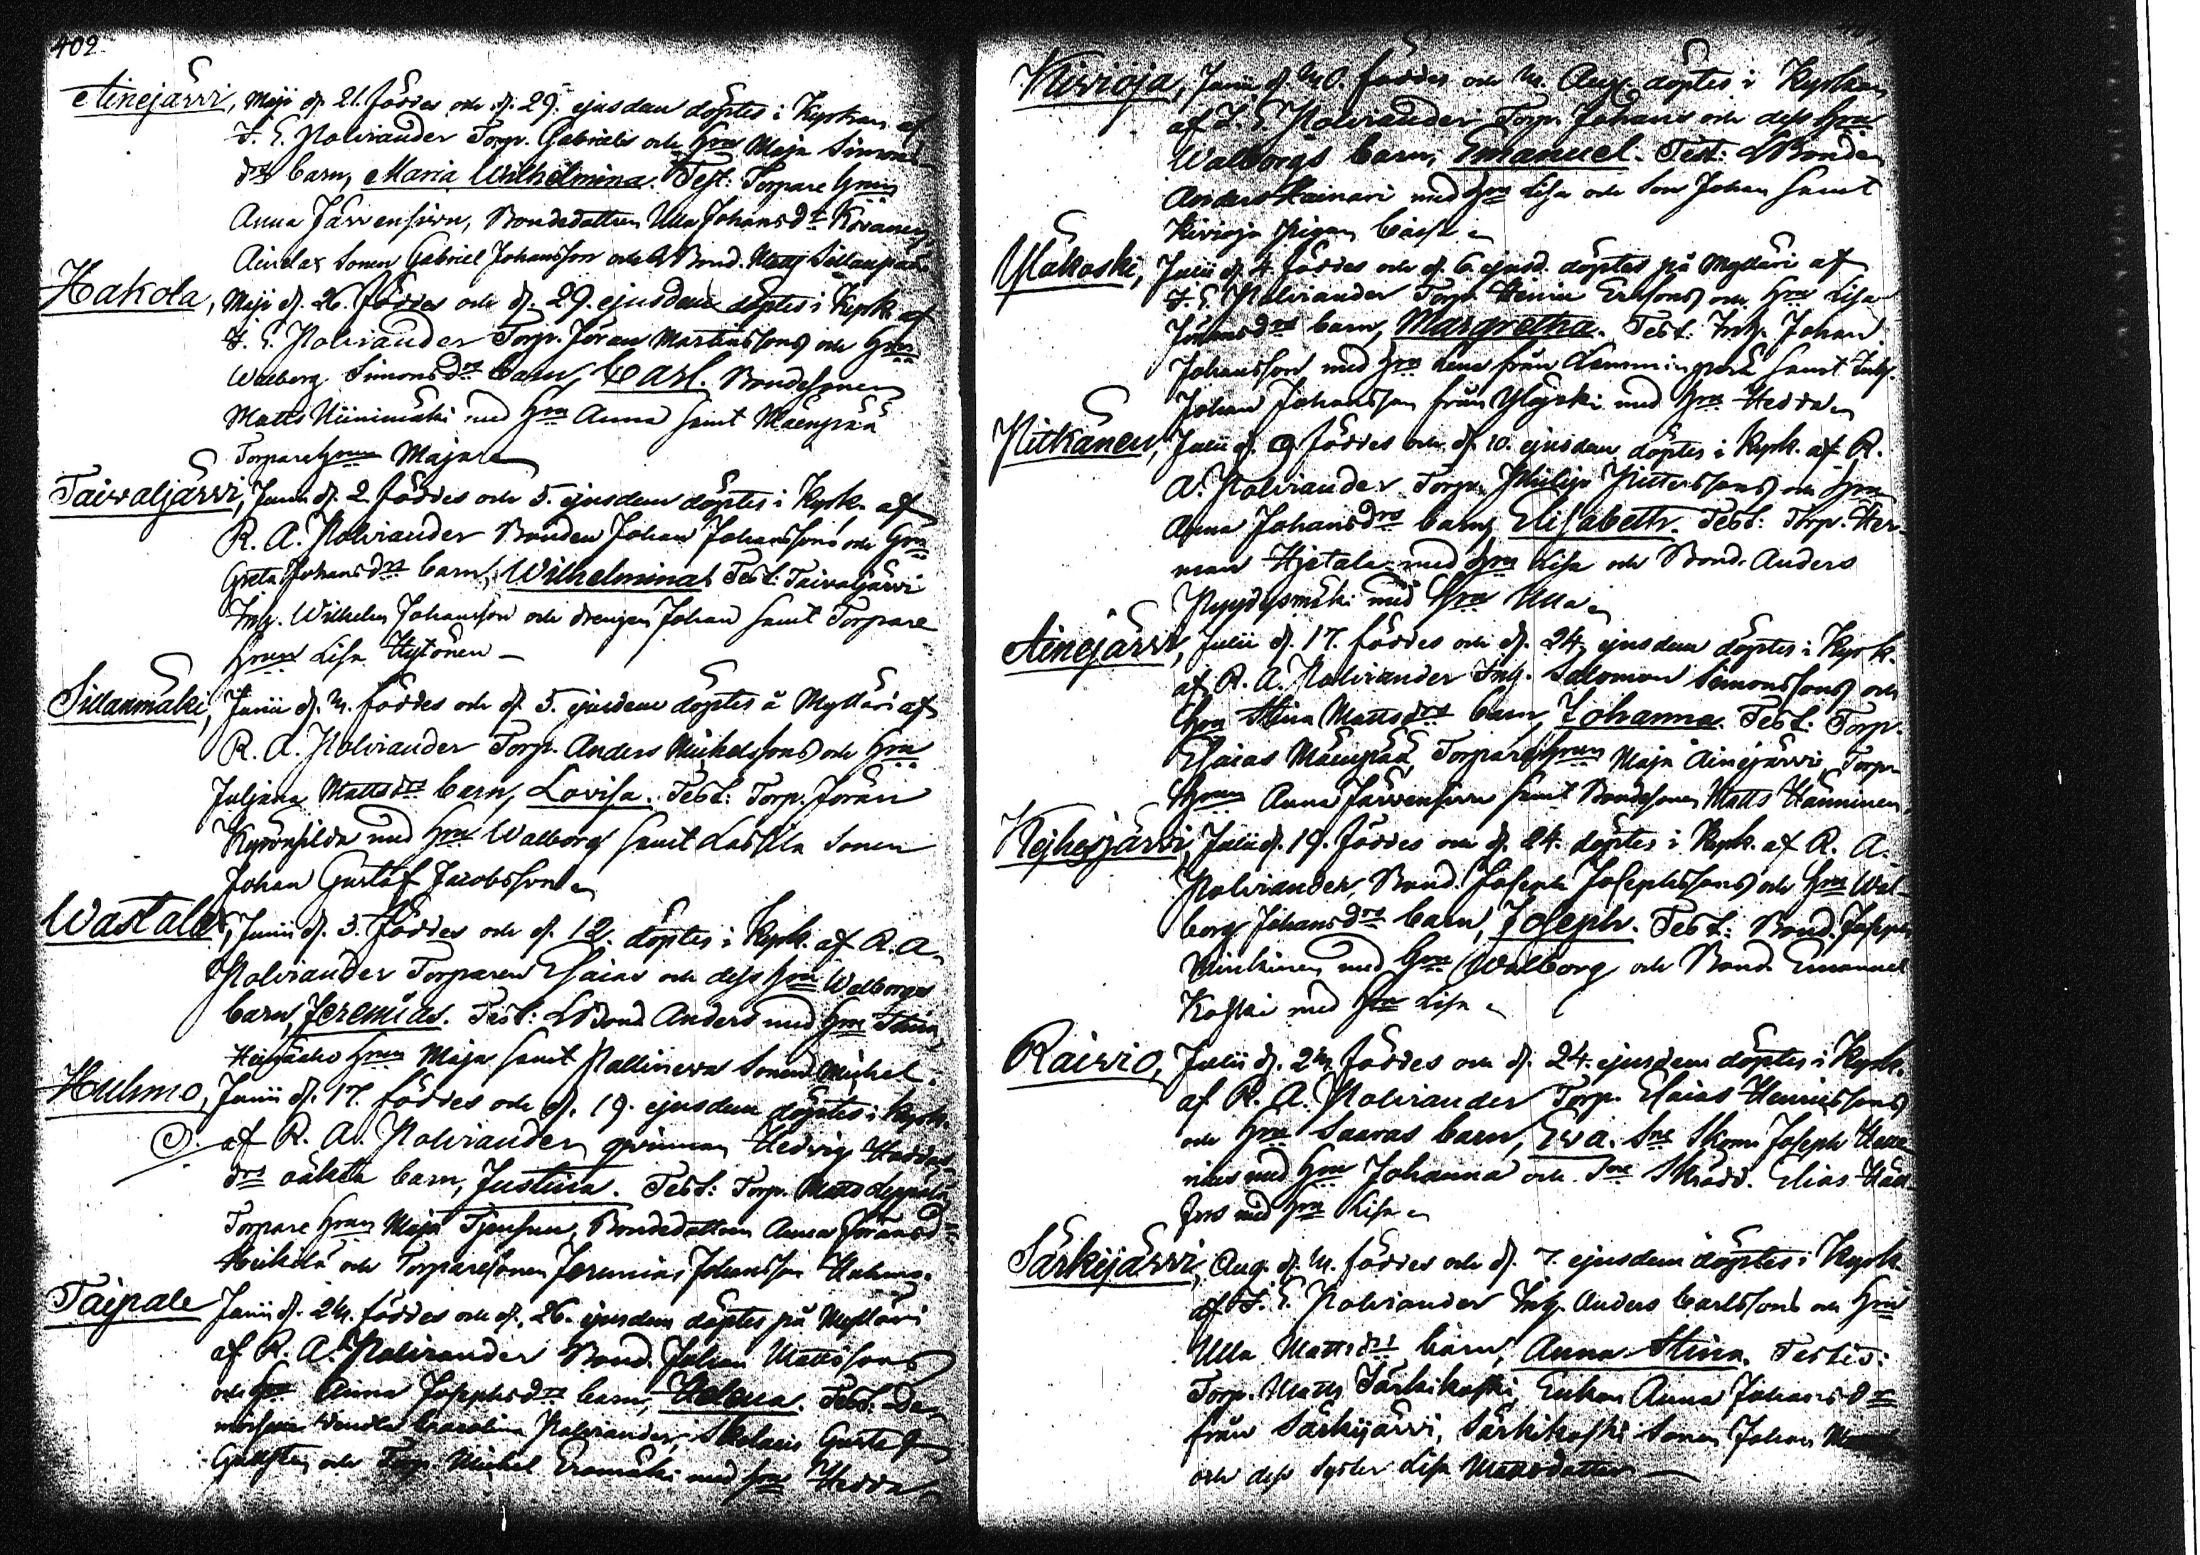 402.
Ainejärvi, Maji d. 21. föddes och d. 29. ejusdem döptes i Kyrkan af
F. E. Polviander Torpr. Gabriels och Hrus Maja Simons
drs barn, Maria Wilhelmina. Test: Torpare Hrun
Anna Järvensivu, Bondedottren Ulla Johansdr
Sonen Gabriel Johansson och Bond. Matts Sillanpää
Hakola, Maji d. 26. föddes och d. 29. ejusdem döptes i Kyrk. af
F. E. Polviander Torpr. Jöran Martinssons och Hrus
Walborg Simonsdrs barn, Carl. Bondesonen
Matts Niinimäki med Hru Anna samt Mäenpää
Torpare Hrun Maja
Taivaljärvi, Junii d. 2 föddes och 5. ejusdem döptes i Kyrk. af
R. A. Polviander Bonden Johan Johanssons och Hrus
Greta Johansdrs barn, Wilhelmina. Test: Taivaljärvi
Inh. Wilhelm Johansson och drengen Johan samt Torpare
Hrun Lisa Hytönen
Sillanmäki, Junii d. 4. föddes och d. 5. ejusdem döptes å Mylläri af
R. A. Polviander Torp. Anders Michelssons och Hru
Juljana Mattsdrs barn, Lovisa. Test: Torp. Jöran
med Hru Walborg samt Lassila Sonen
Johan Gustaf Jacobsson
Wastala, Junii d. 3. föddes och d. 12. döptes i Kyrk. af R. A.
Polviander Torparen Esaias och dess Hru Walborgs
barn, Jeremias. Test: Bond Anders med Hru Stina
Hrun Maja samt Sonen Michel.
Huhmo, Junii d. 17. föddes och d. 19. ejusdem döptes i Kyrk.
O. af R. A. Polviander qvinnan Hedvig
drs oäkta barn, Justina. Test: Torp. Matts Leppälä
Torpare Hrun Maja Bondedottren Anna Jöransdr
Heikkilä och Torparesonen Jeremias Johansson Huhmo.
Taipale Junii d. 24. föddes och d. 26. ejusdem döptes på Mylläri
af R. A. Polviander Bond. Johan Mattssons
och Hru Anna Josephsdrs barn, Helena. Test: De-
Carolina Polviander, Gustaf
och Torp. Michel Eromäki med Hru Hedda
Kivioja, Junii d. 30. föddes och 4. Aug. döptes i Kyrkan
af F. E. Polviander Torpr. Johans och dess Hrus
Walborgs barn, Emanuel. Test: Bonden
Anders med Hru Lisa och Son Johan samt
Kivioja Pigan Caisa
Yläkoski, Julii d. 4. föddes och d. 6. ejusd. döptes på Mylläri af
F. E. Polviander Torp. Henric Ericssons och Hrus Lisa
Jöransdrs barn, Margretha. Test: Inh. Johan
Johansson med Hru Lena från Lamminperä samt Inh.
Johan Johansson från med Hru Hedda
Pitkänen, Julii d. 9. föddes och d. 10. ejusdem döptes i Kyrk. af R.
A. Polviander Torpr. Philip Pitterssons och Hru
Anna Johansdrs barn, Elisabeth. Test: Torp. Her-
man Hjetala med Hru Lisa och Bond. Anders
med Hru Ulla
Ainejärvi, Julii d. 17. föddes och d. 24. ejusdem döptes i Kyrk.
af R. A. Polviander Inh. Salomon Simonssons och
Hru Stina Mattsdrs barn, Johanna. Test: Torp.
Esaias Mäenpää, Torpare Hrun Maja Ainejärvi, Torp.
Hrun Anna Järvensivu samt Bondesonen Matts Hänninen.
Kejhesjärvi, Julii d. 19. föddes och d. 24. döptes i Kyrk. af R. A.
Polviander, Bond. Joseph Josephssons och Hru Wal-
borg Johansdrs barn, Joseph. Test: Bond. Joseph
Minkinen med Hru Walborg och Bond. Emanuel
Koski med Hru Lisa
Raivio, Julii d. 24. föddes och d. 24. ejusdem döptes i Kyrk.
af R. A. Polviander Torp. Esaias Henricssons
och Hru Saaras barn, Eva. Sne Skom. Joseph
med Hru Johanna och Sne Skrädd. Elias Häll-
fors med Hru Lisa
Särkijärvi, Aug. d. 4. föddes och d. 7. ejusdem döptes i Kyrk.
af F. E. Polviander Inh. Anders Carlssons och Hru
Ulla Mattsdrs barn, Anna Stina. Testes:
Torp. Matts Särkikoski, Enkan Anna Johansdr
från Särkijärvi, Särkikoski Sonen Johan
och dess Syster Lisa Mattsdotter